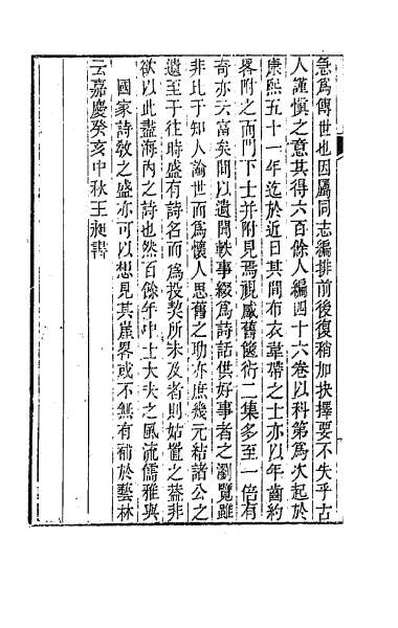 急為傳世也因屬同志編排前後復稍加抉擇要不失乎古
人謹慎之意其得六百餘人編四十六卷以科第為次起於
康熙五十一年迄於近日其間布衣韋帶之士亦以年齒約
畧附之而門下士并附見焉視感舊篋衍二集多至一倍有
奇亦云富矣間以遺聞軼事綴為詩話供好事者之瀏覽雖
非比于知人論世而為懷人思舊之助亦庶幾元結諸公之
遺至于往時盛有詩名而為投契所未及者則姑置之葢非
欲以此盡海內之詩也然百餘年中士大夫之風流儒雅與
國家詩敎之盛亦可以想見其崖畧或不無有補於藝林
云嘉慶癸亥中秋王昶書